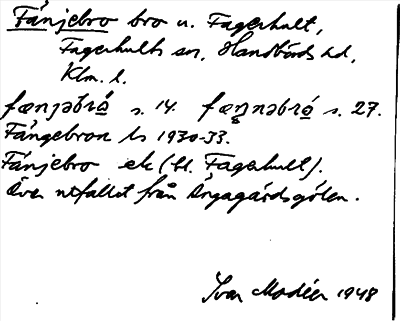 Fånjebro bro u. Fagerhult,
Fagerhults sn, Handbörds hd,
Klm. l.
fænjəbrå s. 14. fæŋnəbrå s. 27.
Fångebron ls 1930-33.
Fånjebro ek (bl. Fagerhult).
Över utfallet från Ångagårdsgölen.
Ivar Modéer 1948